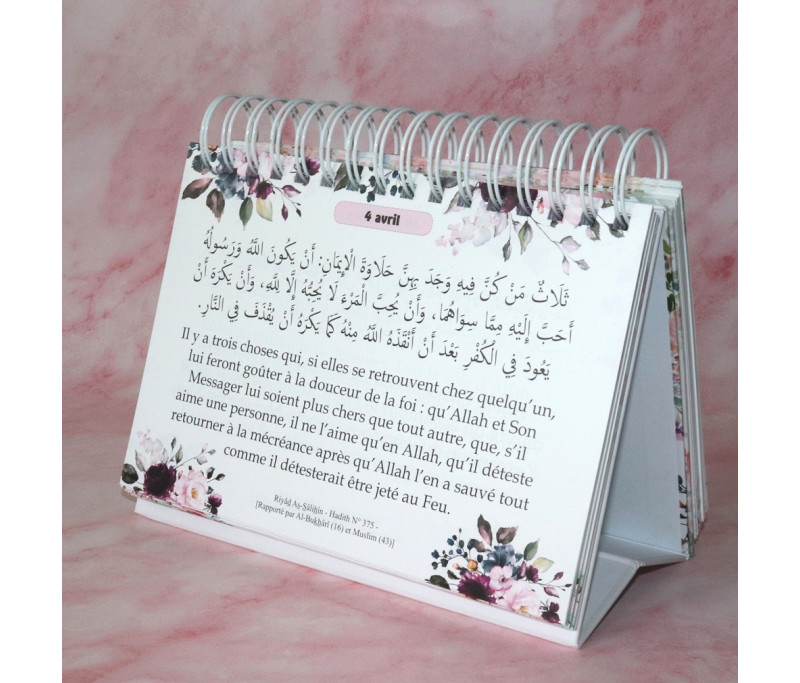 4 avril
ثَلَاثٌ مَنْ كُنَّ فِيهِ وَجَدَ بِهِنَّ حَلَاوَةَ الْإِيمَانِ: أَنْ يَكُونَ اللَّهُ وَرَسُولُهُ
أَحَبَّ إِلَيْهِ مِمَّا سِوَاهُمَا، وَأَنْ يُحِبَّ الْمَرْءَ لَا يُحِبُّهُ إِلَّا لِلَّهِ، وَأَنْ يَكْرَهَ أَنْ
يَعُودَ فِي الْكُفْرِ بَعْدَ أَنْ أَنْقَذَهُ اللَّهُ مِنْهُ كَمَا يَكْرَهُ أَنْ يُقْذَفَ فِي النَّارِ.
Il y a trois choses qui, si elles se retrouvent chez quelqu'un,
lui feront goûter à la douceur de la foi : qu'Allah et Son
Messager lui soient plus chers que tout autre, que, s'il
aime une personne, il ne l'aime qu'en Allah, qu'il déteste
retourner à la mécréance après qu'Allah l'en a sauvé tout
comme il détesterait être jeté au Feu.
Riyâḍ Aṣ-Ṣâliḥîn - Hadith N° 375 -
[Rapporté par Al-Bukhârî (16) et Muslim (43)]